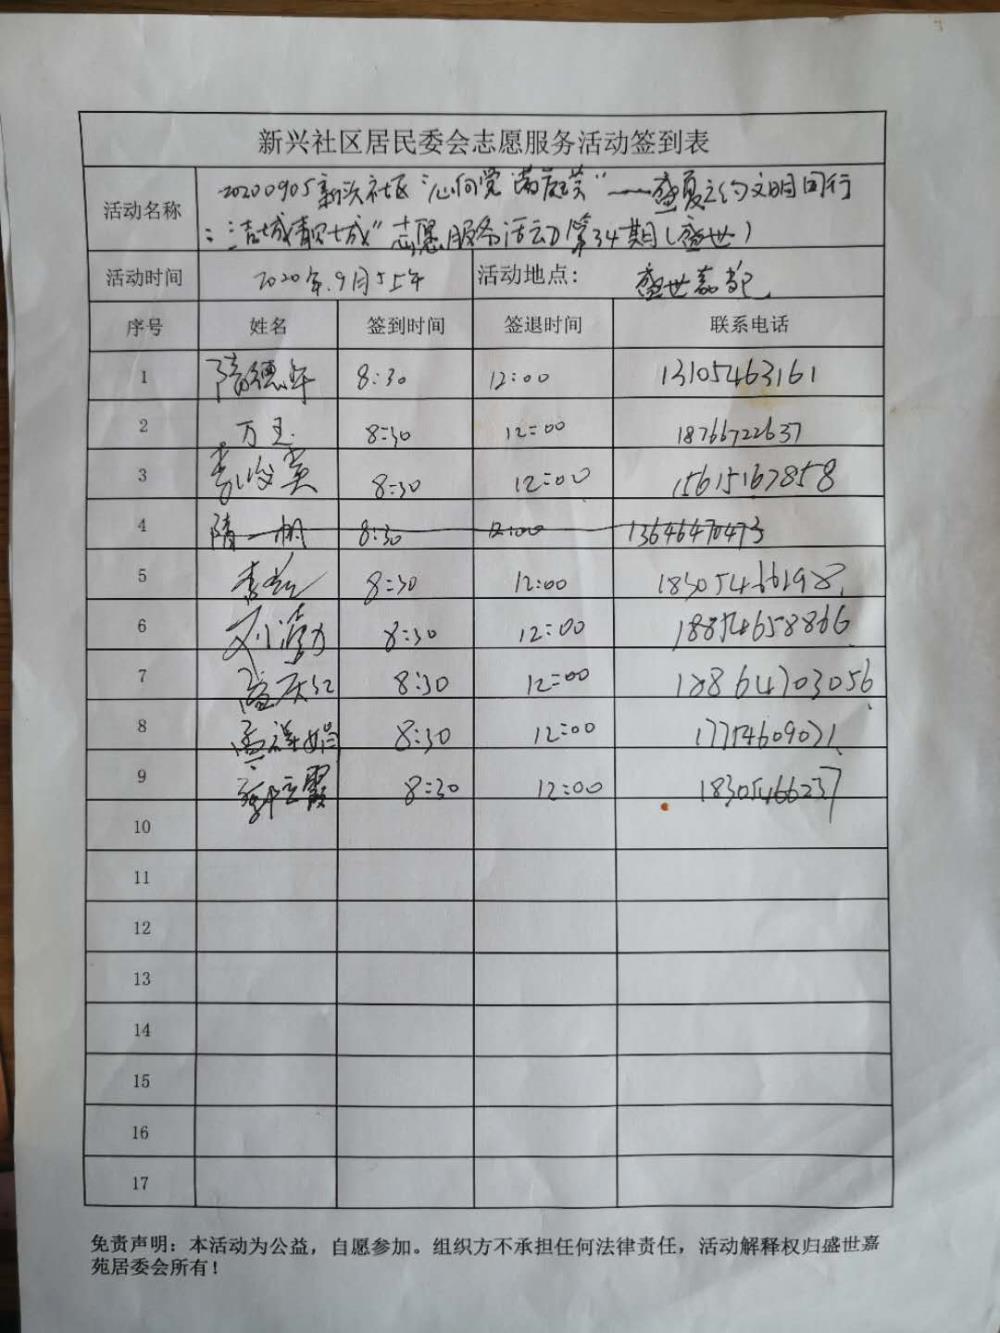 新兴社区居民委会志愿服务活动签到表
活动名称 20200905新兴社区"沁向党 满庭芳"——盛夏之约文明同行
:洁城靓城"志愿服务活动第34期(盛世)
活动时间 2020年9月5上午 活动地点: 盛世嘉苑
序号 姓名 签到时间 签退时间 联系电话
1 隋德年 8:30 12:00 13105463161
2 万玉 8:30 12:00 18766722637
3 8:30 12:00 15615167858
4 隋一帆 8:30 12:00 13646470473
5 8:30 12:00 18305466198
6 刘清 8:30 12:00 18854658866
7 孟庆红 8:30 12:00 18864703056
8 孟祥娟 8:30 12:00 17754609071
9 郭立霞 8:30 12:00 18305466237
10
11
12
13
14
15
16
17
免责声明：本活动为公益，自愿参加。组织方不承担任何法律责任，活动解释权归盛世嘉
苑居委会所有！